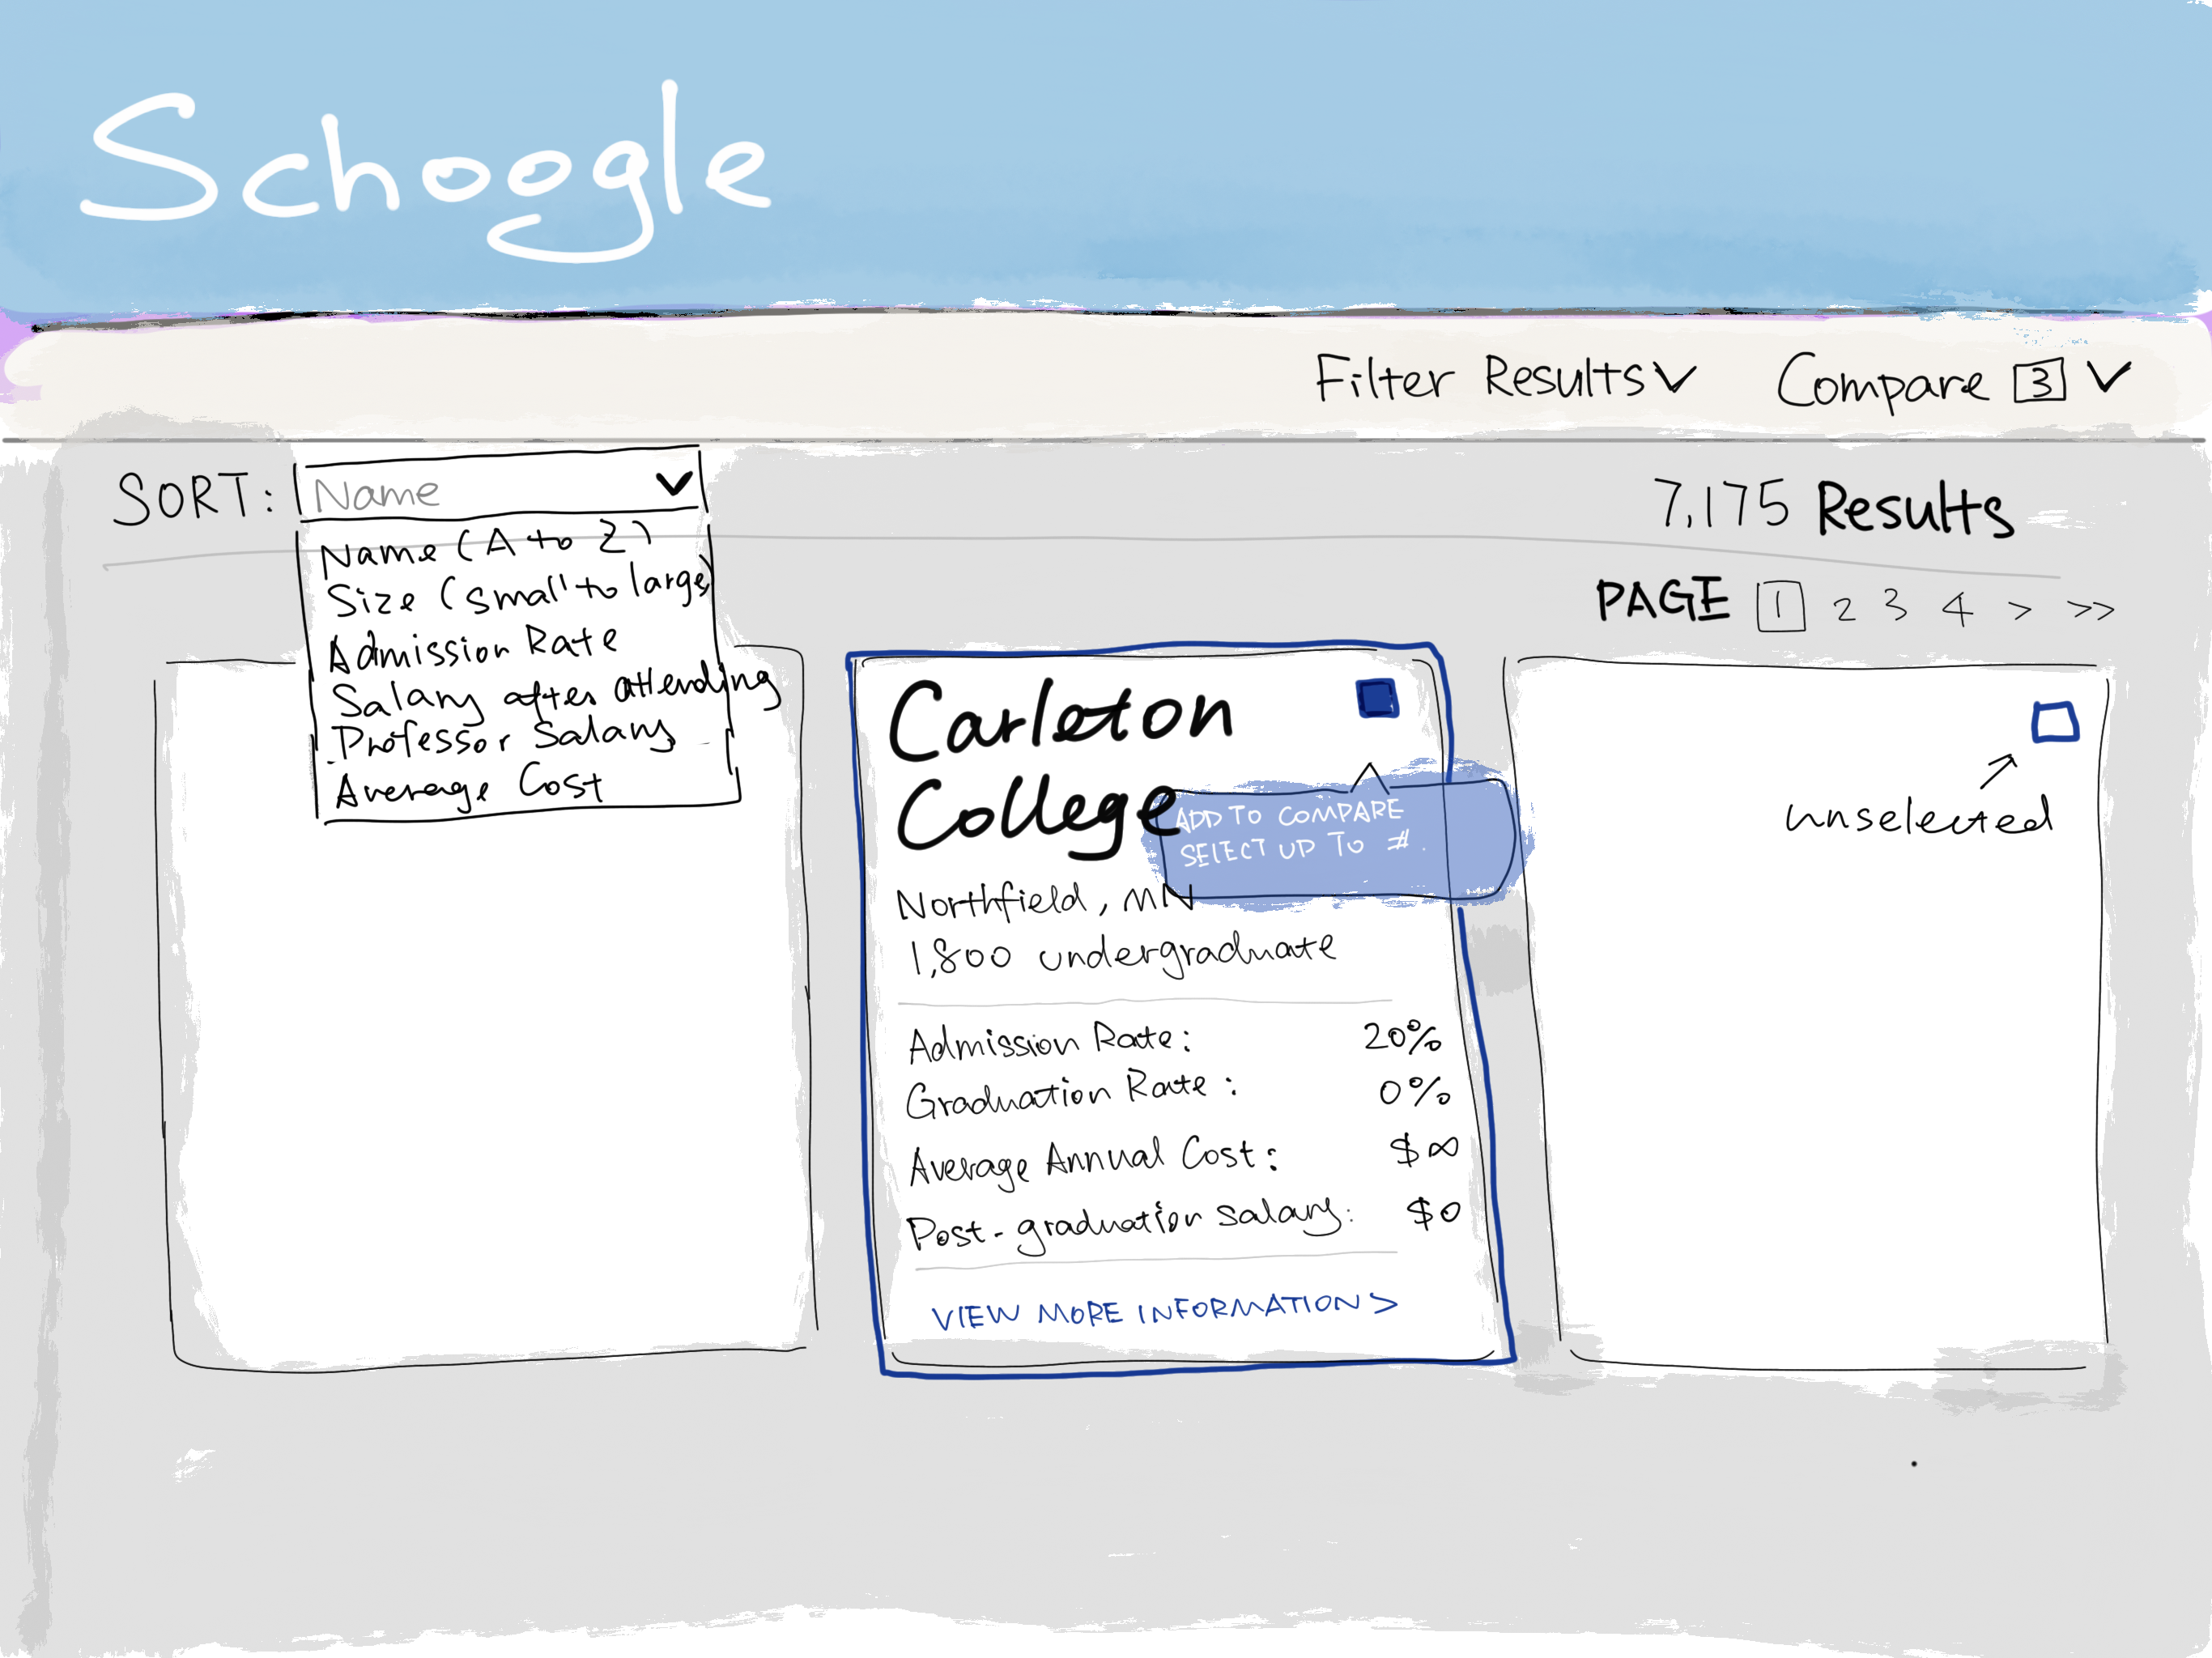 Schoogle
Filter Results
Compare 3
SORT: Name
Name (A to Z)
Size (small to large)
Admission Rate
Salary after attending
Professor Salary
Average Cost
7,175 Results
PAGE 1 2 3 4 > >>
Carleton
College
ADD TO COMPARE
SELECT UP TO #.
Northfield, MN
1,800 undergraduate
Admission Rate: 20%
Graduation Rate: 0%
Average Annual Cost: $∞
Post-graduation salary: $0
VIEW MORE INFORMATION >
unselected